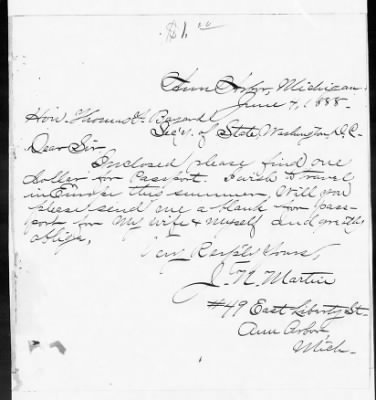 $1.00
Ann Arbor, Michigan.
June 7, 1888.
Hon. Thomas F. Bayard,
Sec'y. of State, Washington, D.C.
Dear Sir,
Inclosed please find one
dollar for Passport. I wish to travel
in Europe this summer. Will you
please send me a blank for pass-
port for My wife & myself and greatly
oblige,
Very Resp'ly Yours,
J. N. Martin
#49 East Liberty St.
Ann Arbor,
Mich.